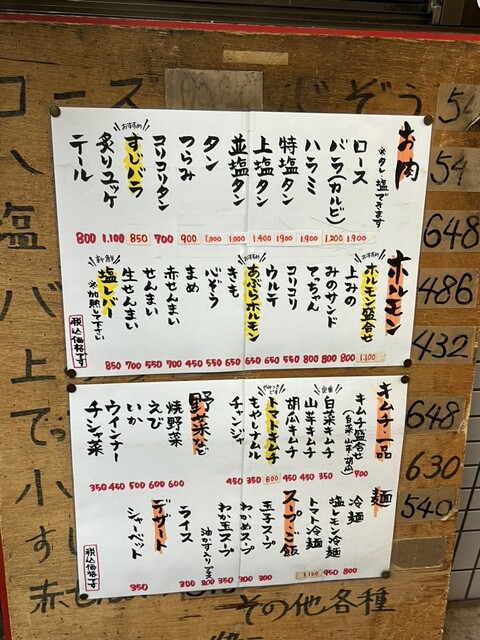 お肉
※タレ塩できます
ロース 1,900
バラ(カルビ) 1,200
ハラミ 1,900
特塩タン 1,900
上塩タン 1,400
並塩タン 1,000
タン 1,000
つらみ 900
コリコリタン 700
おすすめ
すじバラ 850
炙りユッケ 1,100
テール 800
ホルモン
おすすめ
ホルモン盛合せ 1,100
上みの 800
みのサンド 800
てっちゃん 800
コリコリ 550
ウルテ 650
おすすめ
あぶらホルモン 650
きも 650
心ぞう 550
まめ 450
赤せんまい 700
せんまい 550
生せんまい 700
新鮮
塩レバー 850
※加熱して下さい
税込価格です
キムチ一品
キムチ盛合せ 700
(白菜 山芋 胡瓜)
定番
白菜キムチ 350
山芋キムチ 450
胡瓜キムチ 450
トマトキムチ 600
もやしナムル 350
チャンジャ 450
野菜など
焼野菜 600
えび 600
いか 500
ウインナー 450
チシャ菜 350
麺
冷麺 800
塩レモン冷麺 950
トマト冷麺 1,150
スープ・ご飯
玉子スープ 300
わかめスープ 300
わか玉スープ 350
油かす入りプラス 200
ライス 200
デザート
シャーベット 350
税込価格です
コース
ぞう
54
54
塩 648
バ 486
上 432
て 648
小 630
す 540
赤せ
その他各種